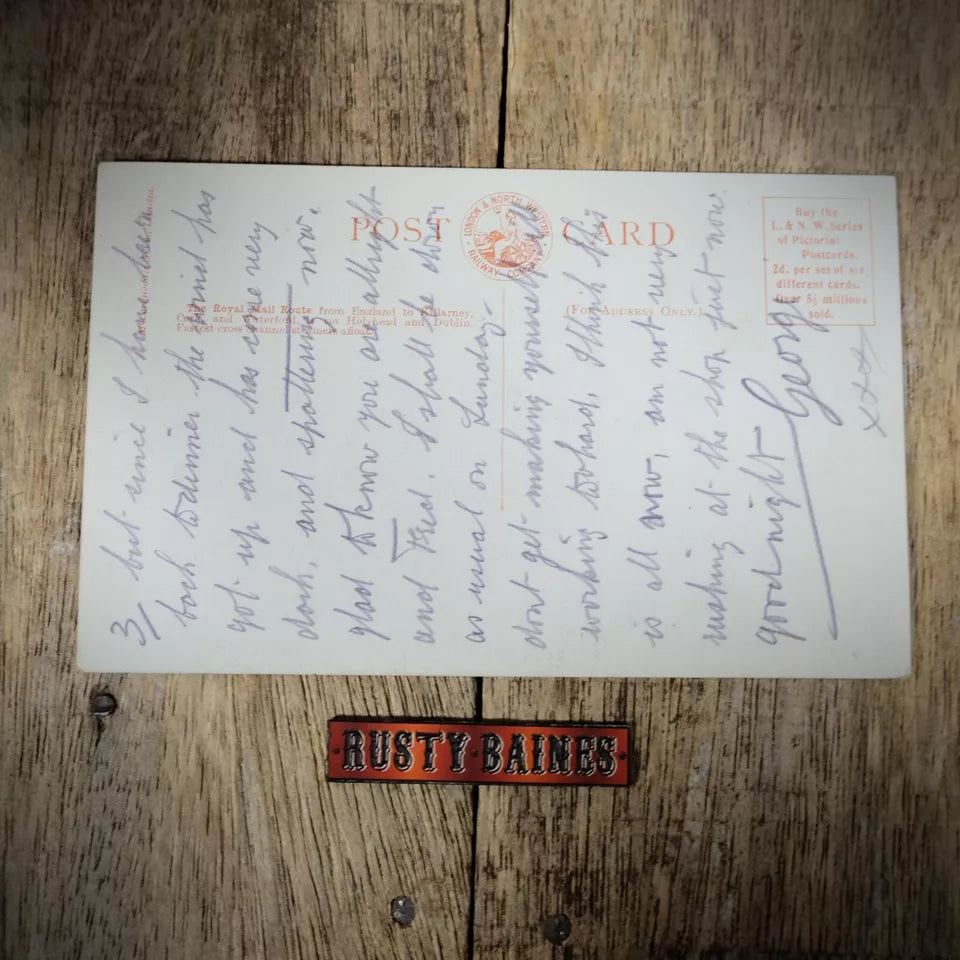 POST CARD
LONDON & NORTH WESTERN
RAILWAY COMPANY
The Royal Mail Route from England to Killarney,
Cork and Waterford, via Holyhead and Dublin.
Fastest cross channel steamers afloat.
(For Address Only.)
Buy the
L. & N. W. Series
of Pictorial
Postcards.
2d. per set of six
different cards.
Over 5½ millions
sold.
3/ but since I have been
back to dinner the wind has
got up and has come very
dark, and spattering now.
glad to know you are allright
and Fred. I shall be down
as usual on Sunday -
dont get making yourself ill
working to hard, I think this
is all now, am not very
making at the shop just now.
goodnight George
xxxx
RUSTY BAINES